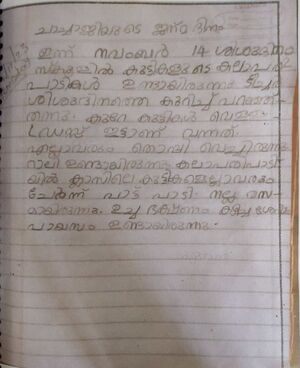 ചാച്ചാജിയുടെ ജന്മദിനം
ഇന്ന് നവംബർ 14 ശിശുദിനം
സ്കൂളിൽ കുട്ടികളുടെ കലാപരി
പാടികൾ ഉണ്ടായിരുന്നു ടീച്ചർ
ശിശുദിനത്തെ കുറിച്ച് പറഞ്ഞു
തന്നു. കുറേ കുട്ടികൾ വെള്ള
ഡ്രസ്സ് ഇട്ടാണ് വന്നത്.
എല്ലാവരും തൊപ്പി വെച്ചിരുന്നു
റാലി ഉണ്ടായിരുന്നു കലാപരിപാടി
യിൽ ക്ലാസിലെ കുട്ടികളെല്ലാവരും
ചേർന്ന് പാട്ട് പാടി നല്ല രസ
മായിരുന്നു. ഉച്ച ഭക്ഷണം കഴിച്ച ശേഷം
പായസം ഉണ്ടായിരുന്നു.